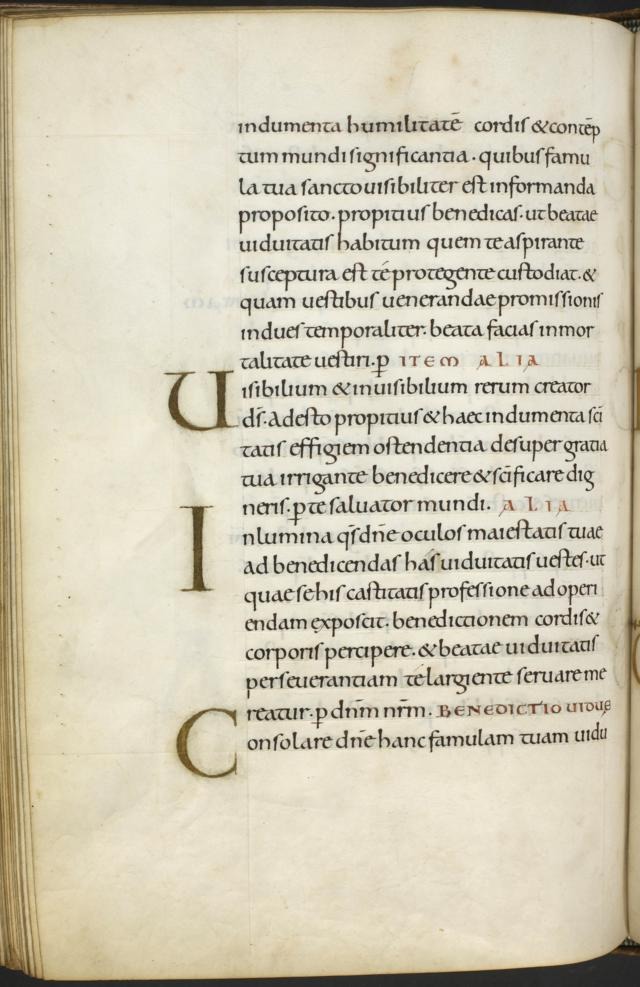 indumenta humilitatē cordis & contēp
tum mundi significantia. quibus famu
la tua sancto uisibiliter est informanda
proposito. propitius benedicas. ut beatae
uiduitatis habitum quem te aspirante
susceptura est té protegente custodiat. &
quam uestibus uenerandae promissionis
indues temporaliter. beata facias inmor
talitate uestiri. ꝑ ITEM ALIA
Uisibilium & inuisibilium rerum creator
dś. Adesto propitius & haec indumenta sci
tatis effigiem ostendentia desuper gratia
tua irrigante benedicere & scificare dig
neris. ꝑ te saluator mundi. ALIA
Inlumina qs dne oculos maiestatis tuae
ad benedicendas has uiduitatis uestes. ut
quae se his castitatis professione adoperi
endam exposcit. benedictionem cordis &
corporis percipere. & beatae uiduitatis
perseuerantiam té largiente seruare me
reatur. ꝑ dnm nrm. BENEDICTIO UIDUĘ
Consolare dne hanc famulam tuam uidu